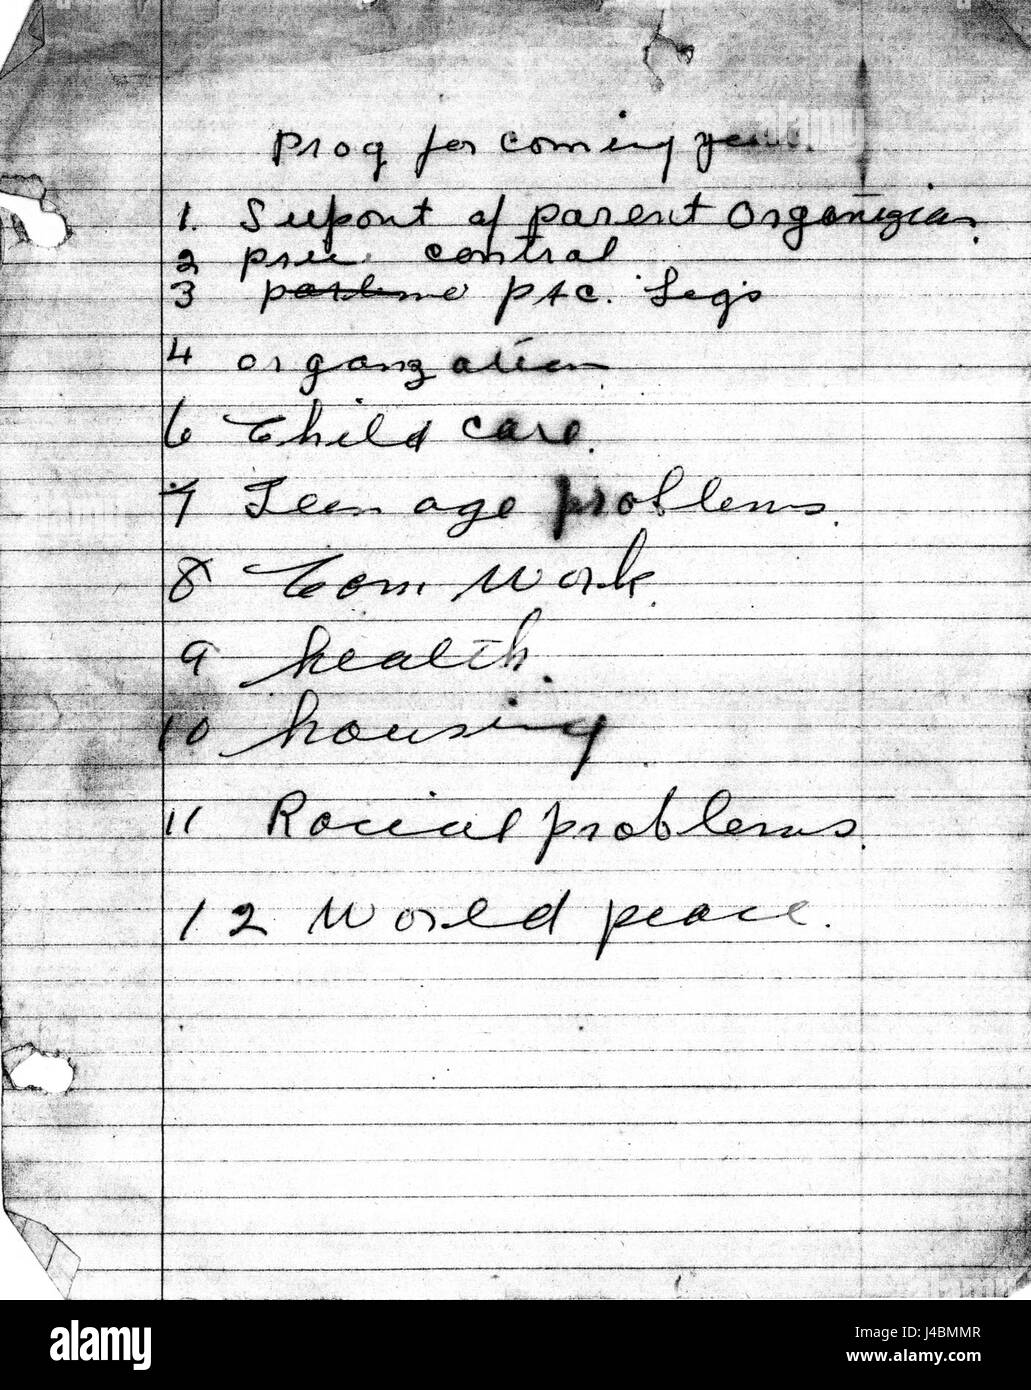 Prog for coming year.
1. Suport of parent Organizian.
2 price control
3 p t c. Legs
4 organzation
6 Child care.
7 Teen age problems.
8 Com. Work.
9 health.
10 housing.
11 Racial problems.
12 World peace.
alamy
Image ID: J4BMMR
www.alamy.com